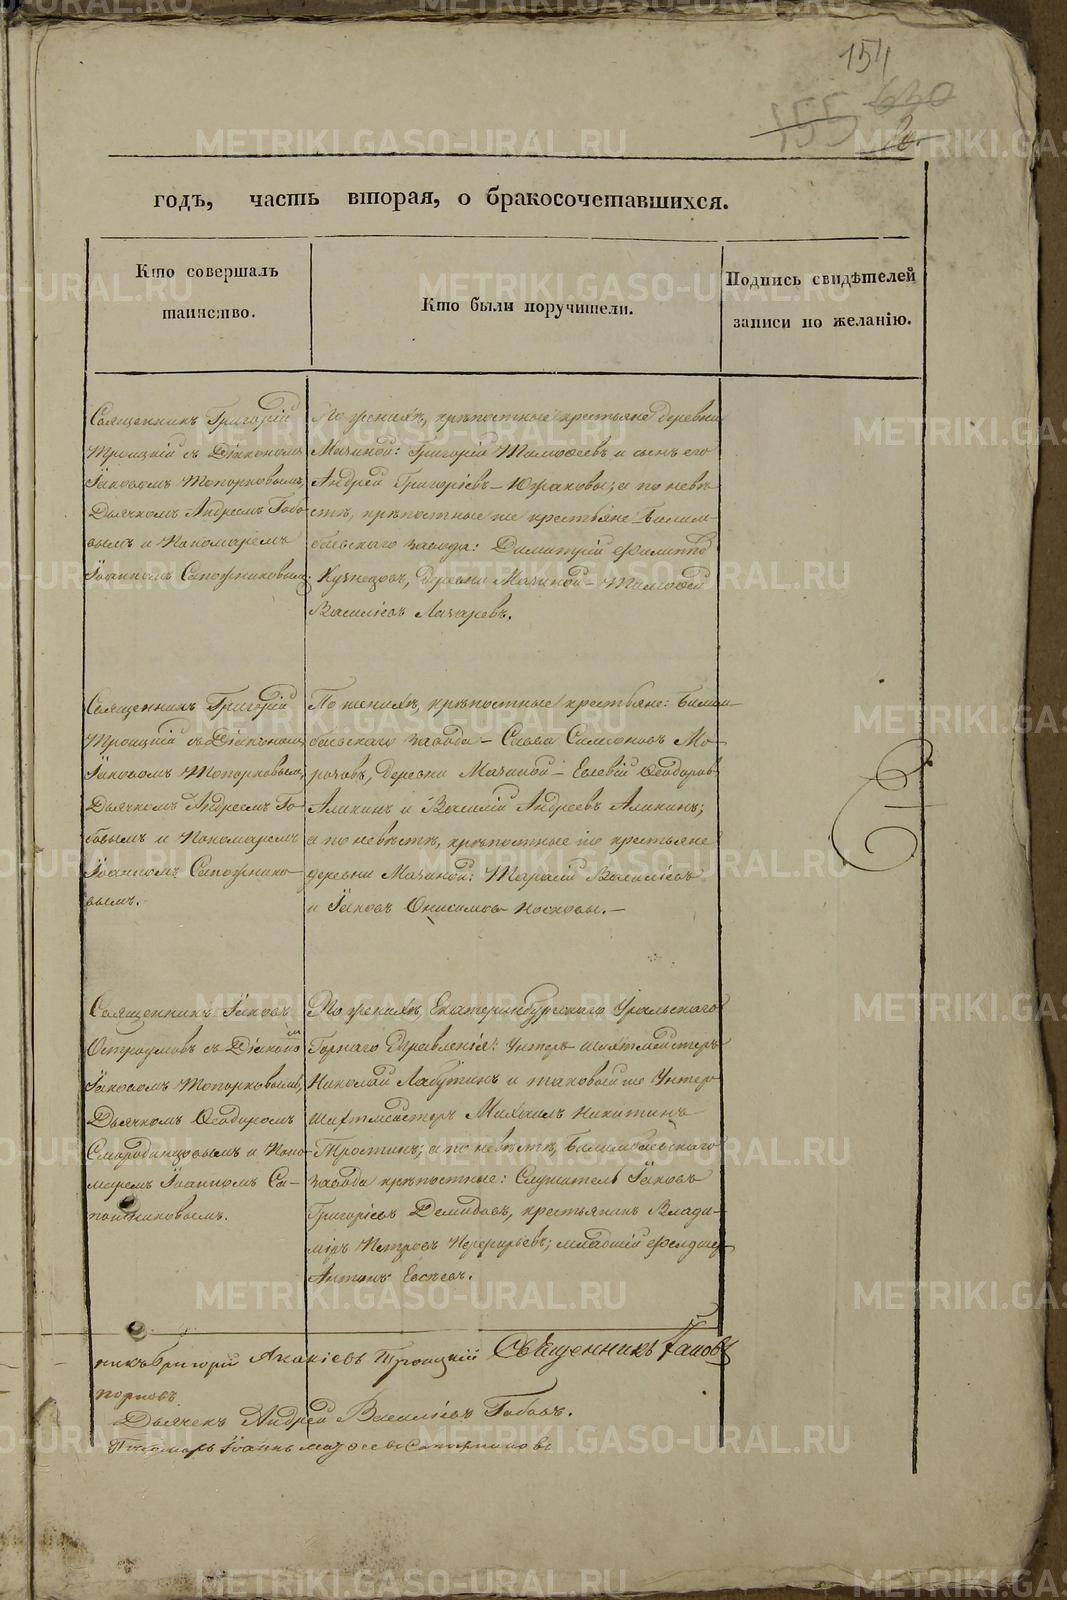 154
155 630
годъ, часть вторая, о бракосочетавшихся.
Кто совершалъ
таинство.
Кто были поручители.
Подпись свидѣтелей
записи по желанію.
Священникъ Григорій
Троицкій съ Діакономъ
Іаковомъ Топорковымъ,
Дьячкомъ Андреемъ Габо
вымъ и Пономаремъ
Іоанномъ Сапожниковымъ.
По женихѣ, крѣпостные крестьяне деревни
Мачиной: Григорій Тимофеевъ и сынъ его
Андрей Григорьевъ; а по невѣ
стѣ, крѣпостные же крестьяне Билим
баевскаго завода: Димитрій Филиппо
Кузнецовъ, деревни Мачиной - Тимофей
Василіевъ Лазаревъ.
Священникъ Григорій
Троицкій съ Діакономъ
Іаковомъ Топорковымъ,
Дьячкомъ Андреемъ Га
бовымъ и Пономаремъ
Іоанномъ Сапожнико
вымъ.
По женихѣ, крѣпостные крестьяне: Билим
баевскаго завода - Савва Симеоновъ Мо
розовъ, деревни Мачиной - Евсевій Ѳеодоровъ
Аликинъ и Василій Андреевъ Аликинъ;
а по невѣстѣ, крѣпостные же крестьяне
деревни Мачиной: Тарасій Василіевъ
и Іаковъ Онисимовъ Носковы. -
Священникъ Іаковъ
Остроумовъ съ Діаконо
мъ
Іаковомъ Топорковымъ,
Дьячкомъ Ѳеодоромъ
Смородинцовымъ и Поно
маремъ Іоанномъ Са-
пожниковымъ.
По женихѣ, Екатеринбургскаго Уральскаго
Горнаго Правленія: Унтеръ шихтмейстеръ
Николай Лабутинъ и таковый же Унтеръ
шихтмейстеръ Михаилъ Никитинъ
Тростинъ; а по невѣстѣ, Билимбаевскаго
завода крѣпостные: Служитель Іаковъ
Григоріевъ Демидовъ, крестьянинъ Влади-
міръ Петровъ; младшій фелдшеръ
Антонъ Евсѣевъ.
никъ Григорій Акакіевъ Троицкій Священникъ Іаковъ
порковъ
Дьячекъ Андрей Василіевъ Габовъ.
Пономарь Іоаннъ Матѳеевъ Сапожниковъ
METRIKI.GASO-URAL.RU